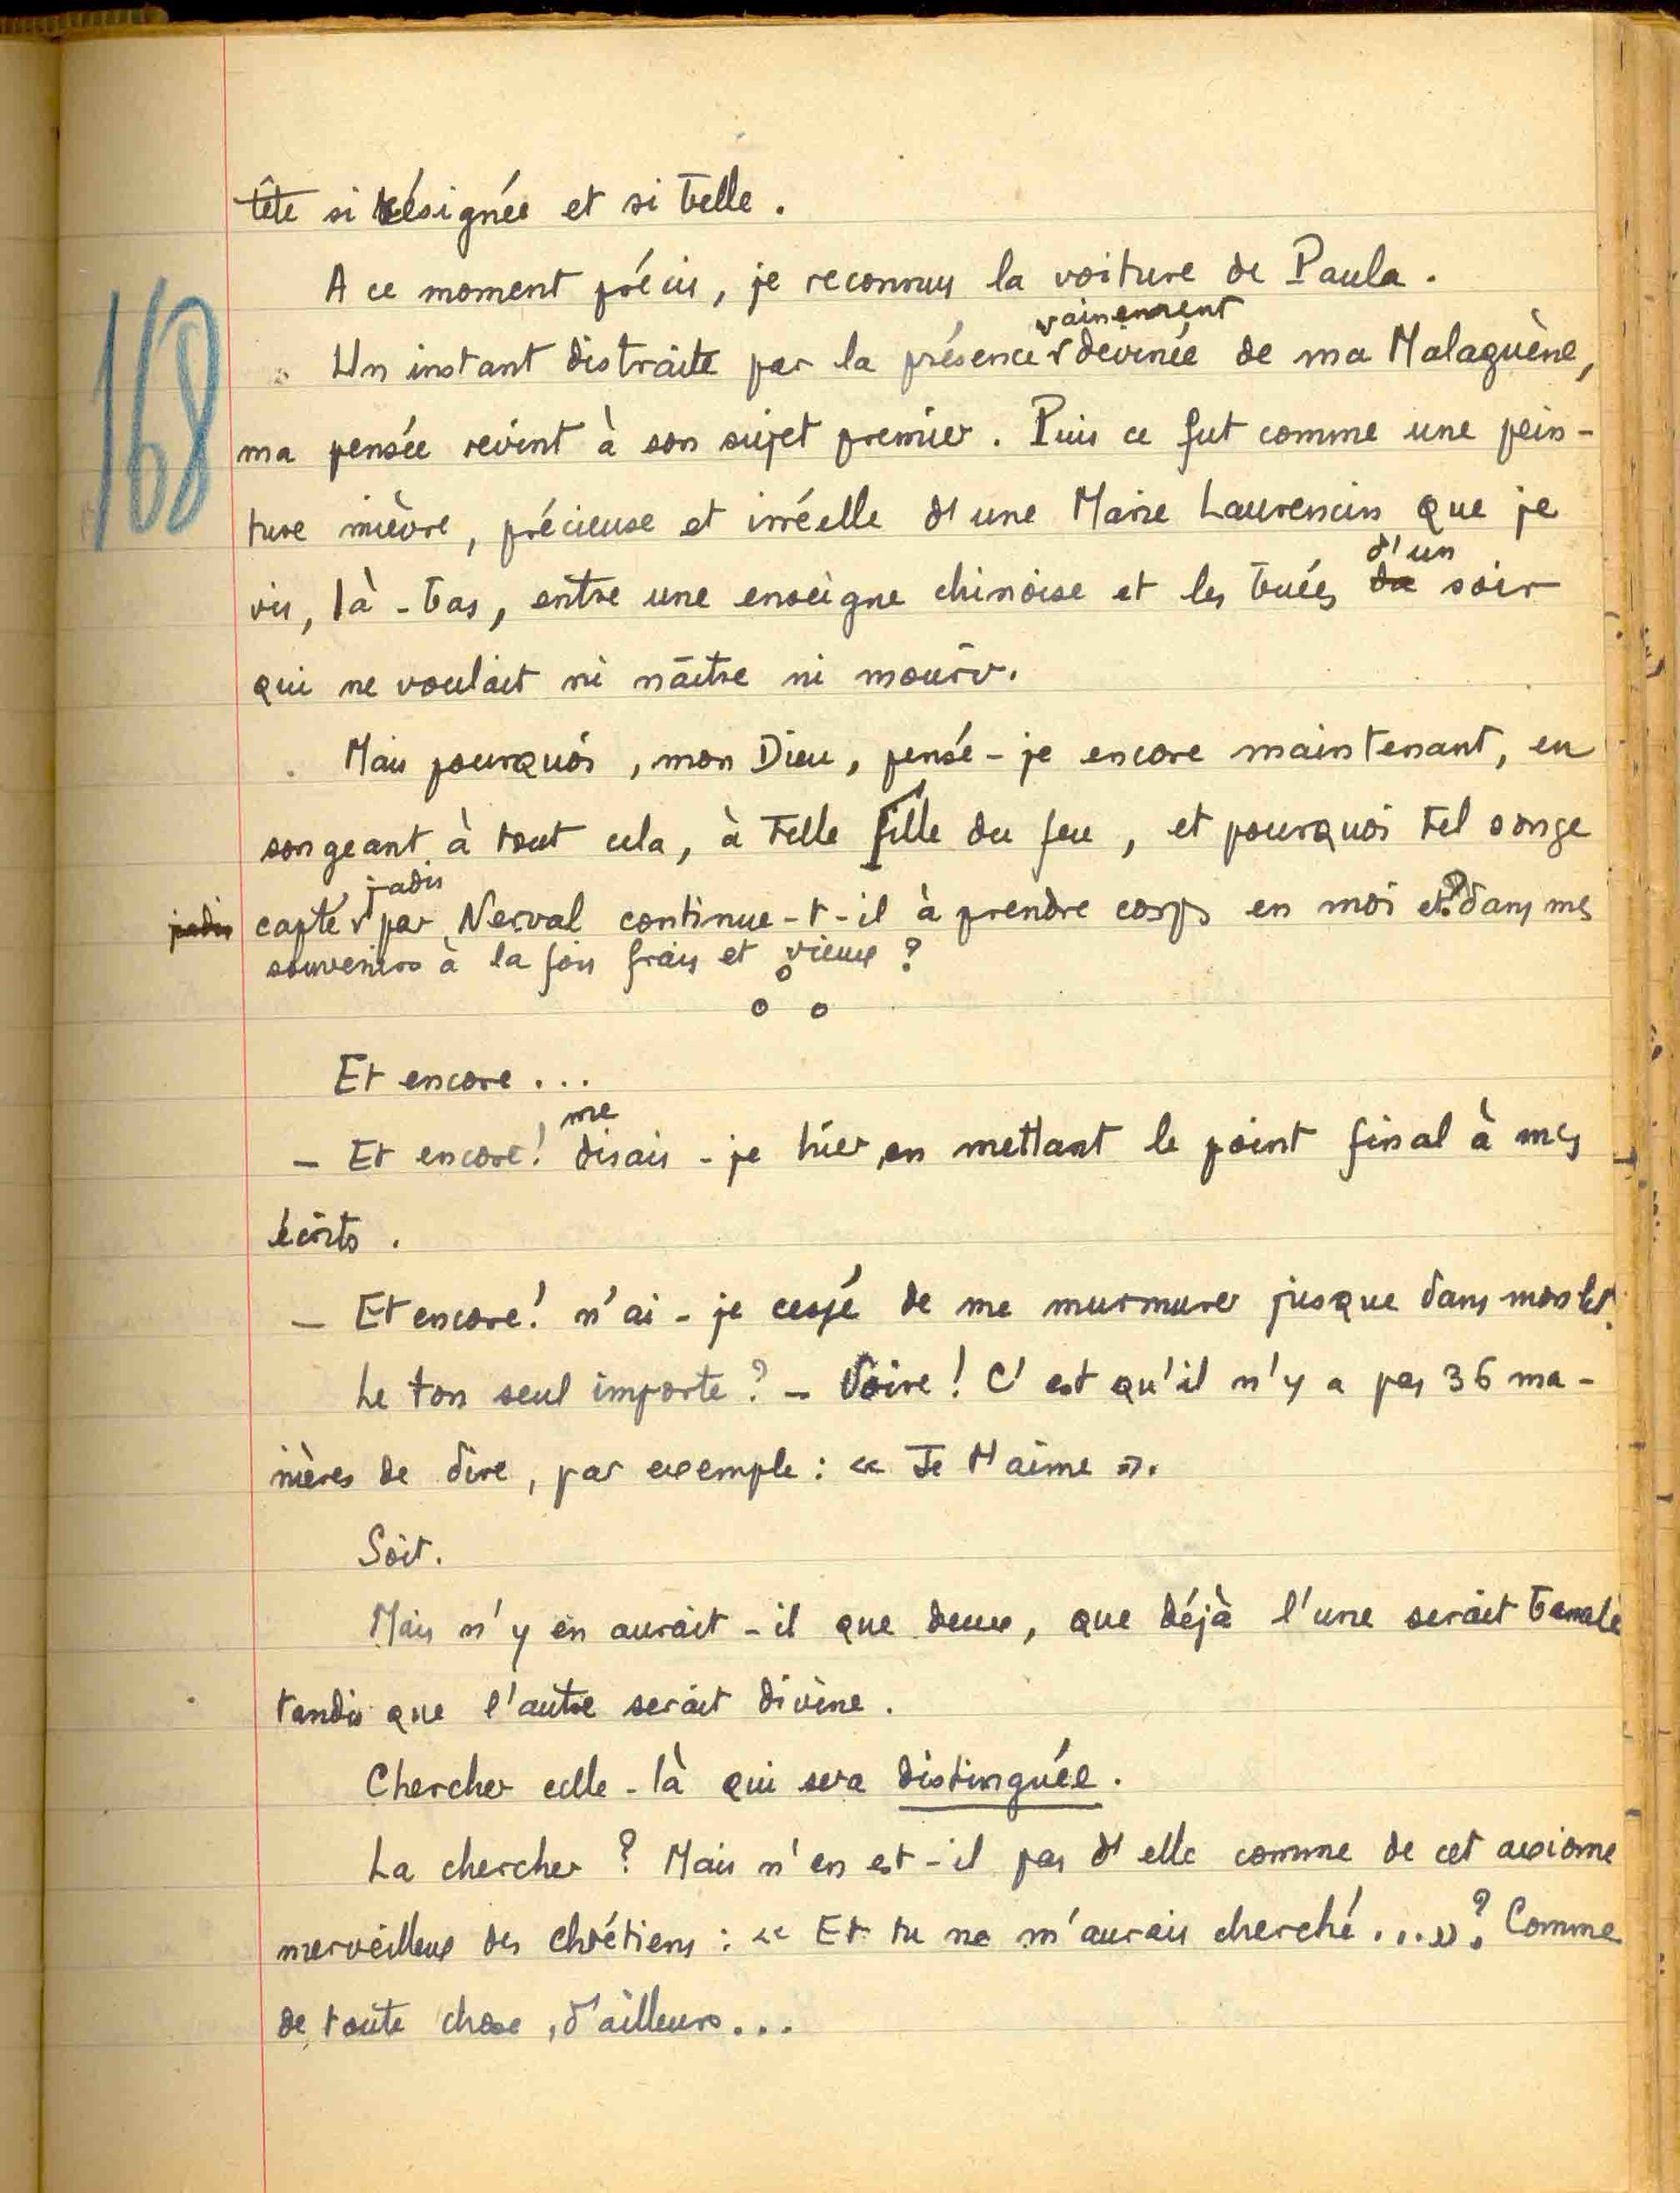 tête si résignée et si belle.
A ce moment précis, je reconnus la voiture de Paula.
vainement
Un instant distraite par la présence devinée de ma Malaguène,
ma pensée revint à son sujet premier. Puis ce fut comme une pein-
ture mièvre, précieuse et irréelle d'une Marie Laurencin que je
d'un
vis, là-bas, entre une enseigne chinoise et les buées du soir
qui ne voulait ni naître ni mourir.
Mais pourquoi, mon Dieu, pensé-je encore maintenant, en
songeant à tout cela, à telle fille du feu, et pourquoi tel songe
jadis
jadis capté par Nerval continue-t-il à prendre corps en moi et dans mes
souvenirs à la fois frais et vieux ?
o
o o
Et encore...
me
— Et encore! disais-je hier, en mettant le point final à mes
écrits.
— Et encore! n'ai-je cessé de me murmurer jusque dans mon lit.
Le ton seul importe? — Voire! C'est qu'il n'y a pas 36 ma-
nières de dire, par exemple: « Je t'aime ».
Soit.
Mais n'y en aurait-il que deux, que déjà l'une serait banale
tandis que l'autre serait divine.
Chercher celle-là qui sera distinguée.
La chercher? Mais n'en est-il pas d'elle comme de cet axiome
merveilleux des chrétiens: « Et tu ne m'aurais cherché...»? Comme
de toute chose, d'ailleurs...
168